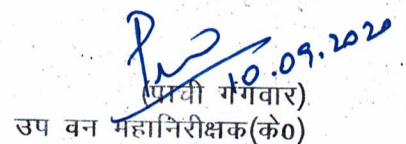 10.09.2020
(प्राची गंगवार)
उप वन महानिरीक्षक(के0)